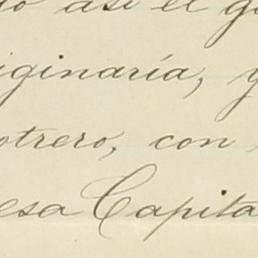 do así el g
iginaría, y
otrero, con
esa Capita